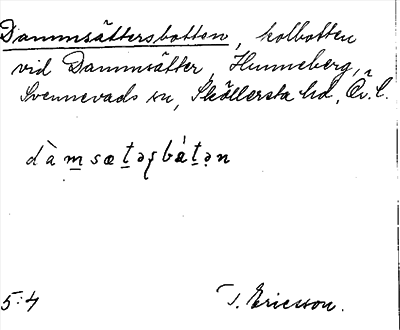 Dammsättersbotten, kolbotten
vid Dammsätter, Hunneberg,
Svennevads sn, Sköllersta hd, Ör. l.
dàmsætəʂbátən
5:4
T. Ericsson.